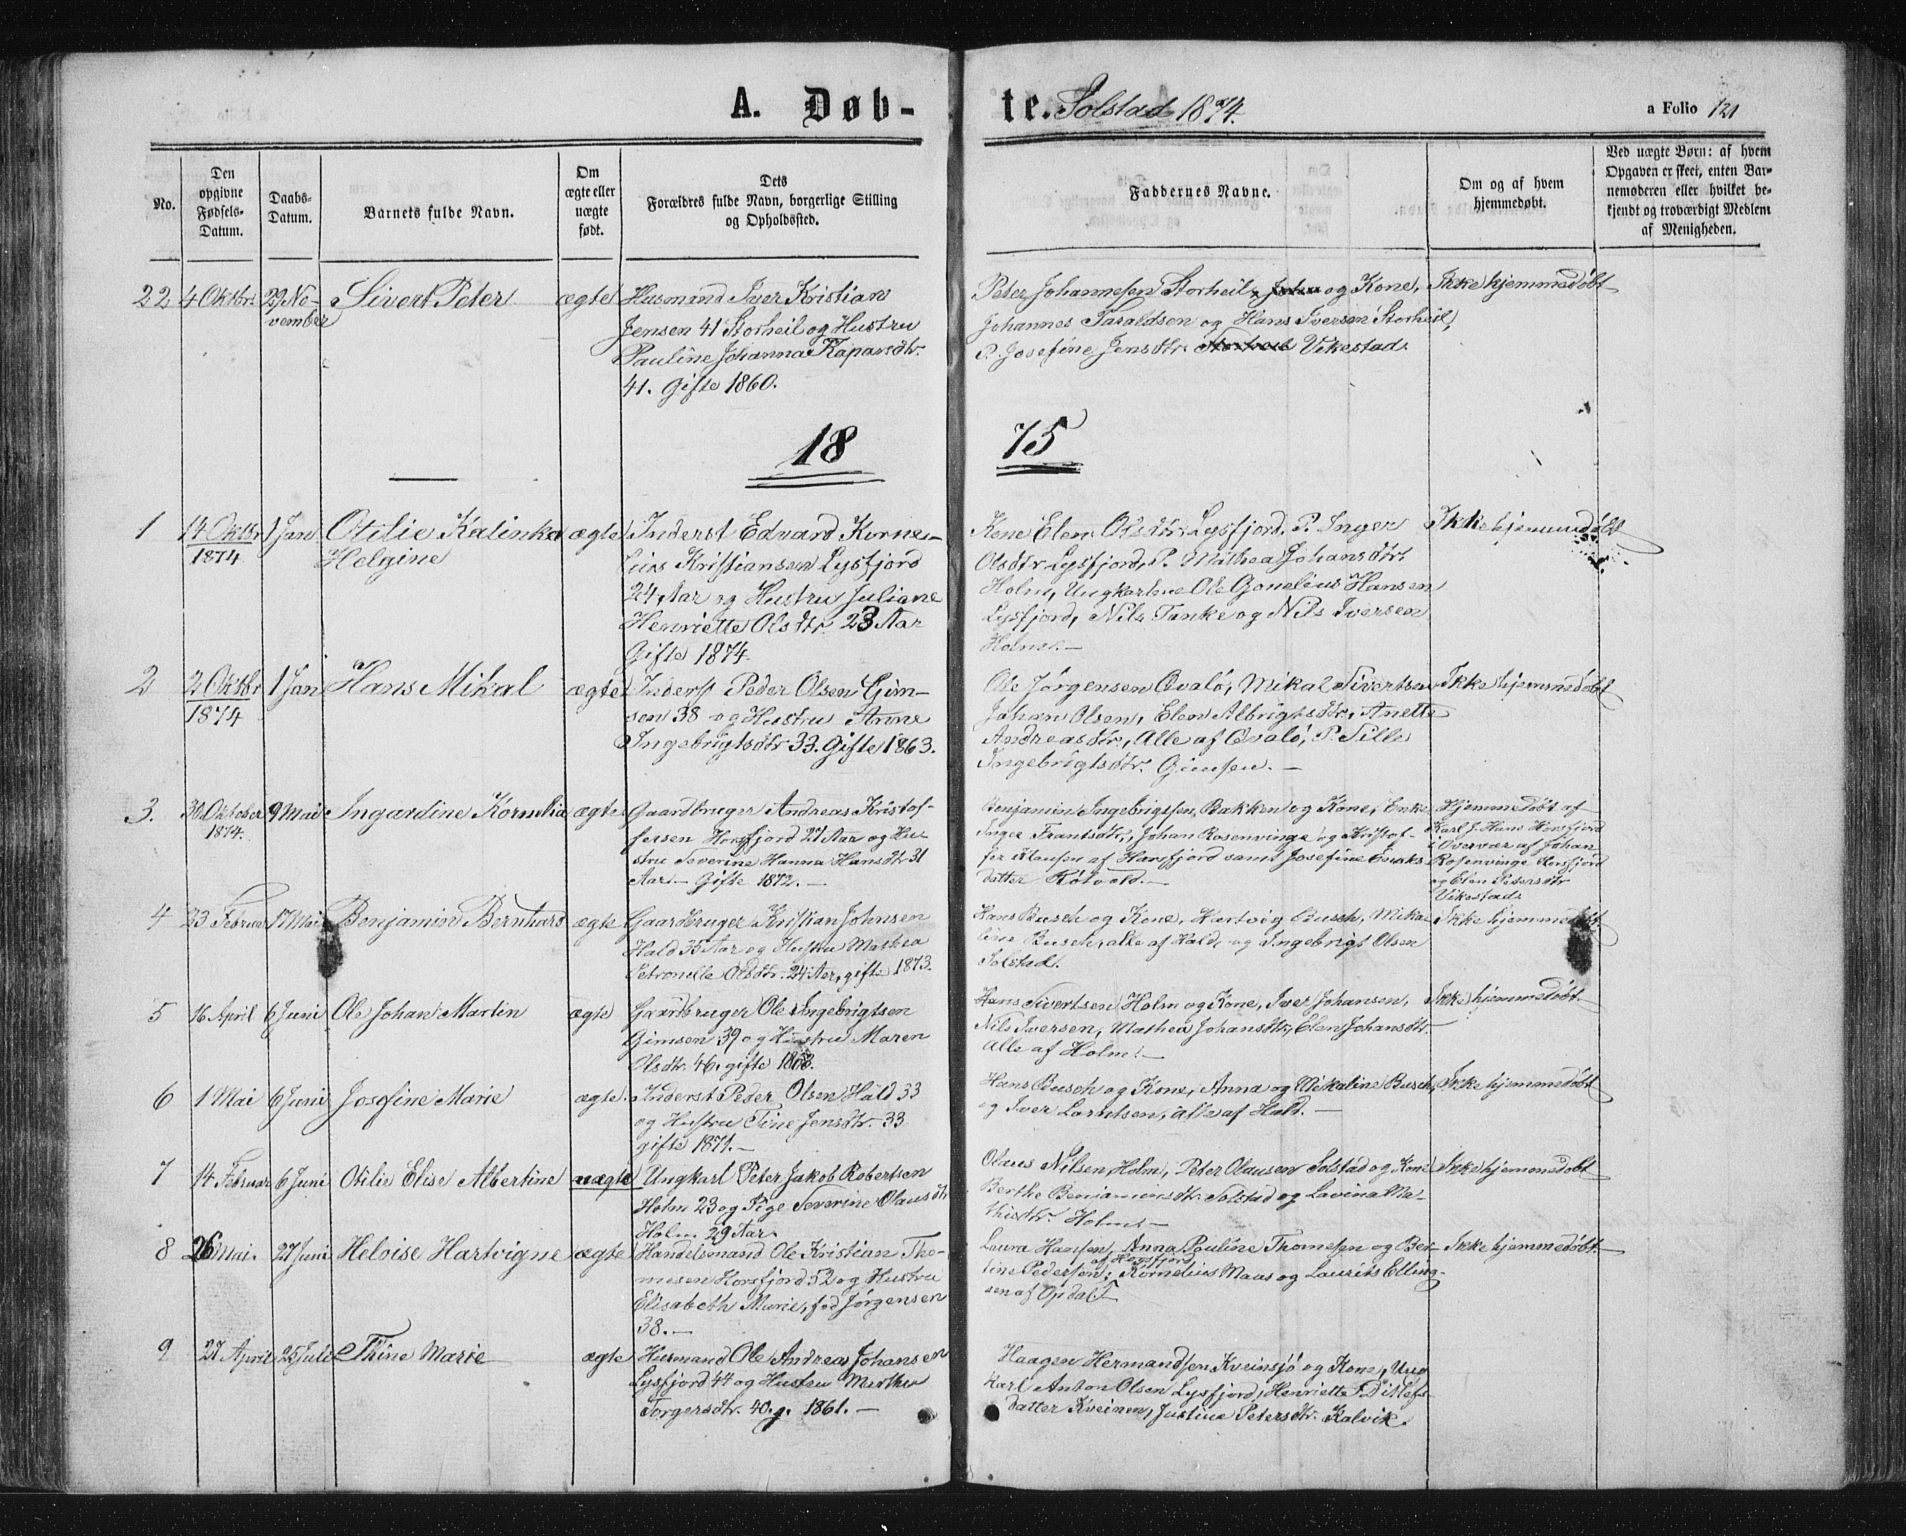 A. Døb-
te. Solstad 1874.
a Folio 121
No.
Den
opgivne
Fødsels-
Datum.
Daabs-
Datum.
Barnets fulde Navn.
Om
ægte eller
uægte
født.
Dets
Forældres fulde Navn, borgerlige Stilling
og Opholdssted.
Faddernes Navne.
Om og af hvem
hjemmedøbt.
Ved uægte Børn: af hvem
Opgaven er skeet, enten Bar-
nemoderen eller hvilket be-
kjendt og troværdigt Medlem
af Menigheden.
22 4 Oktbr. 29 No-
vember
Sivert Peter
ægte
Husmand Iver Kristian
Jensen 41 Storheil og Hustru
Pauline Johanna Kaparsdtr.
41. Gifte 1860.
Peder Johannesen Storheil og Kone,
Johannes Taraldsen og Hans Iversen Storheil,
P. Josefine Jensdtr. Vikestad.
Ikke hjemmedøbt
18
75
1
14 Oktbr
1874
1 Jan
Otilie Kalinka
Helgine
ægte
Inderst Edvard Korne-
lius Kristiansen Lysfjord
24 Aar og Hustru Juliane
Henriette Olsdtr. 23 Aar
Gifte 1874.
Kone Elen Olsdtr. Lysfjord, P. Inger
Olsdtr. Lysfjord, P. Mathea Johansdtr.
Holm, Ungkarlene Ole Hansen
Lysfjord, Nils Tanke og Nils Iversen
Holm.-
Ikke hjemmedøbt
2
2 Oktbr
1874
1 Jan
Hans Mikal
ægte
Inderst Peder Olsen Gim-
sen 38 og Hustru Anne
Ingebrigtsdtr 33. Gifte 1863.
Ole Jørgensen Qvalø, Mikal Sivertsen
Johan Olsen, Elen Albrigtsdtr. Anette
Andreasdtr, Alle af Qvalø, P. Sille
Ingebrigtsdtr. Gimsen.-
Ikke hjemmedøbt
3.
30 Oktober
1874.
9 Mai
Ingardine Kornelia
ægte
Gaardbruger Andreas Kristof-
fersen Horsfjord 27 Aar og Hu-
stru Severine Hanna Hansdtr 31
Aar.- Gifte 1872.-
Benjamin Ingebrigtsen Bakken og Kone, Enke
Inger Frantsdtr, Johan Rosenvinge og Kristof-
fer af Horsfjord samt Josefine
datter
Hjemmedøbt af
Karl J. Hans Horsfjord
i Overvær af Johan
Rosenvinge Horsfjord
og Elen Pedersdtr
Vikestad.
4
23 Februar
17 Mai
Benjamin Bernhard
ægte
Gaardbruger Kristian Johnsen
Hald 33 Aar og Hustru Mathea
Petronelle Olsdtr. 24 Aar, gifte 1873.
Hans Busch og Kone, Hartvig Busch, Mika-
line Busch, alle af Hald, og Ingebrigt Olsen
Solstad.
Ikke hjemmedøbt.
5
16 April
6 Juni
Ole Johan Martin
ægte
Gaardbruger Ole Ingebrigtsen
Gimsen 39 og Hustru Maren
Olsdtr. 46. gifte
Hans Sivertsen Holm og Kone, Iver Johansen,
Nils Iversen, Mathea Johansdtr, Elen Johansdtr.
alle af Holm.-
Ikke hjemmedøbt
6
1 Mai
6 Juni
Josefine Marie
ægte.
Inderst Peder Olsen Hald 33
og Hustru Tine Jensdtr. 33
gifte 1871.-
Hans Busch og Kone, Anna og Mikaline Busch,
og Iver Larntsen, alle af Hald.-
Ikke hjemmedøbt
7
14 Februar
6 Juni
Otilie Elise Albertine
uægte
Ungkarl Peter Jakob Robertsen
Holm 23 og Pige Severine Olausdtr
Holm 29 Aar.
Olaus Nilsen Holm, Peter Olausen Solstad og Kone
Berthe Benjaminsdtr. Solstad og Lavina Ma-
thisdtr. Holm.-
Ikke hjemmedøbt
8
26 Mai.
27 Juni
Heloise Hartvigne
ægte
Handelsmand Ole Kristian Tho-
mesen Horsfjord 52 og Hustru
Elisabeth Marie, fød Jørgensen
38.-
Laura Hansen, Anna Pauline Thomesen og Ber-
af Horsfjord
tine Pedersen, Kornelius Maas og Laurits Elling-
sen af Opdal.
Ikke hjemmedøbt
9
27 April
25 Juli
Thine Marie
ægte
Husmand Ole Andreas Johansen
Lysfjord 44 og Hustru Merthea
Torgersdtr. 40. g. 1861.-
Haagen Hermandsen Kveinsjø og Kone, Ung-
karl Anton Olsen Lysfjord, Henriette F. Ditlefs-
datter Kveinen, Justine Petersdtr. Kalvik.